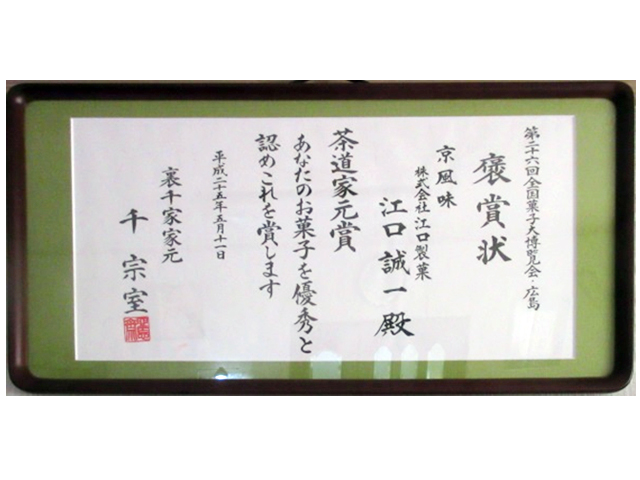 第二十六回全国菓子大博覧会・広島
褒賞状
京風味
株式会社 江口製菓
江口誠一殿
茶道家元賞
あなたのお菓子を優秀と
認めこれを賞します
平成二十五年五月十一日
裏千家家元
千宗室